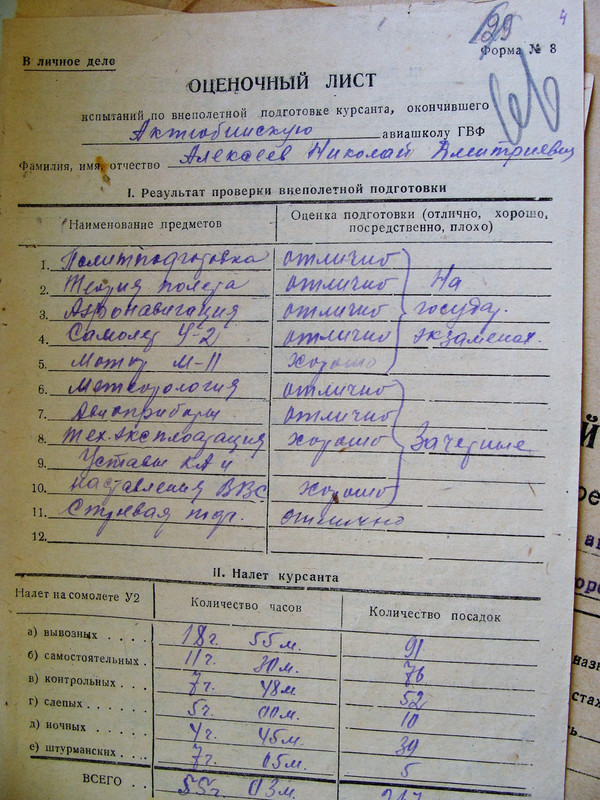 4
199
Форма № 8
В личное дело
ОЦЕНОЧНЫЙ ЛИСТ
испытаний по внеполетной подготовке курсанта, окончившего
Актюбинскую авиашколу ГВФ
Фамилия, имя, отчество Алексеев Николай Дмитриевич
I. Результат проверки внеполетной подготовки
Наименование предметов Оценка подготовки (отлично, хорошо, посредственно, плохо)
1. Политподготовка отлично
2. Теория полета отлично На
3. Аэронавигация отлично государ.
4. Самолет У-2 отлично экзаменах.
5. Мотор М-11 хорошо
6. Метеорология отлично
7. Авиоприборы отлично
8. Тех. эксплоатация хорошо Зачетные
9. Уставы КА и
10. наставления ВВС хорошо
11. Строевая подг. отлично
12.
II. Налет курсанта
Налет на сомолете У2 Количество часов Количество посадок
а) вывозных . . . . 18 г. 55 м. 91
б) самостоятельных . 11 г. 30 м. 76
в) контрольных . . . 7 г. 48 м 52
г) слепых . . . . . 5 г. 00 м. 10
д) ночных . . . . 4 г. 45 м. 39
е) штурманских . . . 7 г. 05 м. 5
ВСЕГО . . 55 г. 03 м.